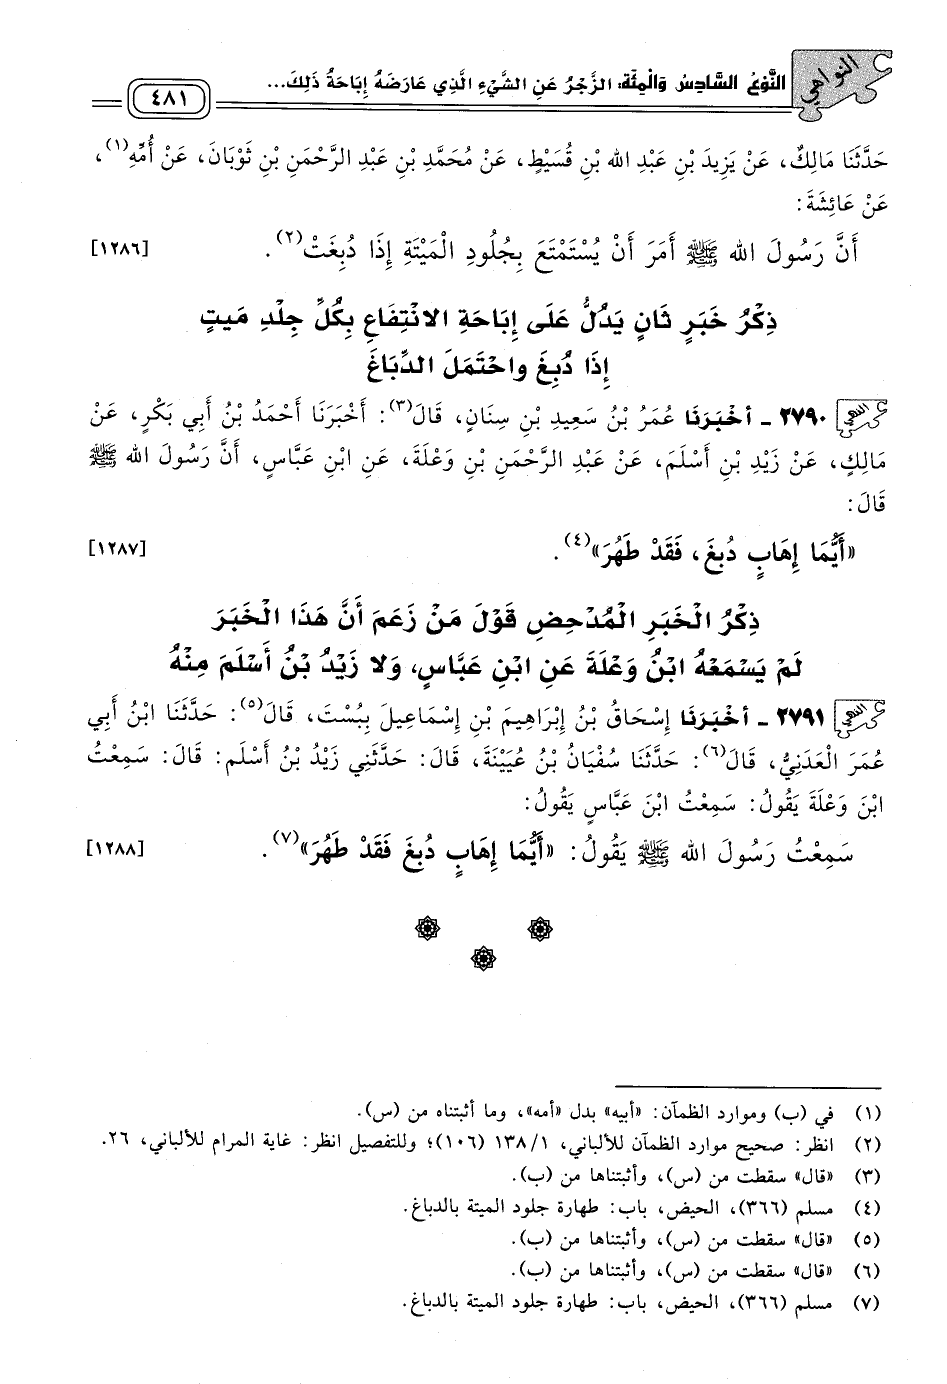 النواهي
النَّوْعُ السَّادِسُ وَالْمِئَةُ: الزَّجْرُ عَنِ الشَّيْءِ الَّذِي عَارَضَهُ إِبَاحَةُ ذَلِكَ...
٤٨١
حَدَّثَنَا مَالِكٌ، عَنْ يَزِيدَ بْنِ عَبْدِ الله بْنِ قُسَيْطٍ، عَنْ مُحَمَّدِ بْنِ عَبْدِ الرَّحْمَنِ بْنِ ثَوْبَانَ، عَنْ أُمِّهِ(١)،
عَنْ عَائِشَةَ:
أَنَّ رَسُولَ الله ﷺ أَمَرَ أَنْ يُسْتَمْتَعَ بِجُلُودِ الْمَيْتَةِ إِذَا دُبِغَتْ(٢). [١٢٨٦]
ذِكْرُ خَبَرٍ ثَانٍ يَدُلُّ عَلَى إِبَاحَةِ الانْتِفَاعِ بِكُلِّ جِلْدِ مَيتٍ
إِذَا دُبِغَ واحْتَمَلَ الدِّبَاغَ
٢٧٩٠ - أخْبَرَنَا عُمَرُ بْنُ سَعِيدِ بْنِ سِنَانٍ، قَالَ(٣): أَخْبَرَنَا أَحْمَدُ بْنُ أَبِي بَكْرٍ، عَنْ
مَالِكٍ، عَنْ زَيْدِ بْنِ أَسْلَمَ، عَنْ عَبْدِ الرَّحْمَنِ بْنِ وَعْلَةَ، عَنِ ابْنِ عَبَّاسٍ، أَنَّ رَسُولَ الله ﷺ
قَالَ:
«أَيُّمَا إِهَابٍ دُبِغَ، فَقَدْ طَهُرَ»(٤). [١٢٨٧]
ذِكْرُ الْخَبَرِ الْمُدْحِضِ قَوْلَ مَنْ زَعَمَ أَنَّ هَذَا الْخَبَرَ
لَمْ يَسْمَعْهُ ابْنُ وَعْلَةَ عَنِ ابْنِ عَبَّاسٍ، وَلا زَيْدُ بْنُ أَسْلَمَ مِنْهُ
٢٧٩١ - أخْبَرَنَا إِسْحَاقُ بْنُ إِبْرَاهِيمَ بْنِ إِسْمَاعِيلَ بِبُسْتَ، قَالَ(٥): حَدَّثَنَا ابْنُ أَبِي
عُمَرَ الْعَدَنِيُّ، قَالَ(٦): حَدَّثَنَا سُفْيَانُ بْنُ عُيَيْنَةَ، قَالَ: حَدَّثَنِي زَيْدُ بْنُ أَسْلَمَ: قَالَ: سَمِعْتُ
ابْنَ وَعْلَةَ يَقُولُ: سَمِعْتُ ابْنَ عَبَّاسٍ يَقُولُ:
سَمِعْتُ رَسُولَ الله ﷺ يَقُولُ: «أَيُّمَا إِهَابٍ دُبِغَ فَقَدْ طَهُرَ»(٧). [١٢٨٨]
(١) في (ب) وموارد الظمآن: «أبيه» بدل «أمه»، وما أثبتناه من (س).
(٢) انظر: صحيح موارد الظمآن للألباني، ١/ ١٣٨ (١٠٦)؛ وللتفصيل انظر: غاية المرام للألباني، ٢٦.
(٣) «قال» سقطت من (س)، وأثبتناها من (ب).
(٤) مسلم (٣٦٦)، الحيض، باب: طهارة جلود الميتة بالدباغ.
(٥) «قال» سقطت من (س)، وأثبتناها من (ب).
(٦) «قال» سقطت من (س)، وأثبتناها من (ب).
(٧) مسلم (٣٦٦)، الحيض، باب: طهارة جلود الميتة بالدباغ.